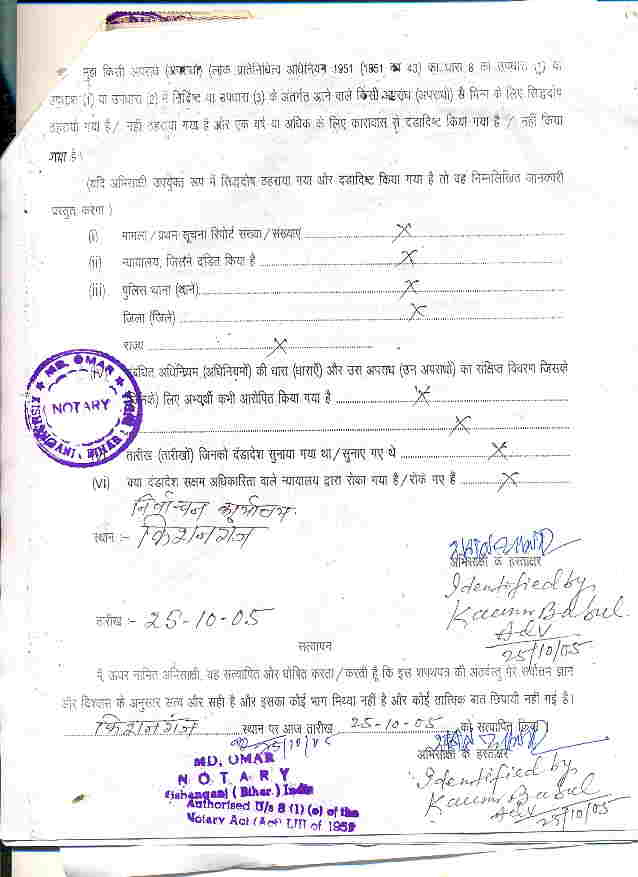 मुझे किसी अपराध (अपराधों) (लोक प्रतिनिधित्व अधिनियम 1951 (1951 का 43) की धारा 8 की उपधारा (1) या
उपधारा (1) या उपधारा (2) में निर्दिष्ट या उपधारा (3) के अंतर्गत आने वाले किसी अपराध (अपराधों) से भिन्न के लिए सिद्धदोष
ठहराया गया है / नहीं ठहराया गया है और एक वर्ष या अधिक के लिए कारावास से दंडादिष्ट किया गया है / नहीं किया
गया है।
(यदि अभिसाक्षी उपर्युक्त रूप में सिद्धदोष ठहराया गया और दंडादिष्ट किया गया है तो वह निम्नलिखित जानकारी
प्रस्तुत करेगा)
(i) मामला / प्रथम सूचना रिपोर्ट संख्या / संख्याएं X
(ii) न्यायालय, जिसने दंडित किया है X
(iii) पुलिस थाना (थाने) X
जिला (जिले) X
राज्य X
संबंधित अधिनियम (अधिनियमों) की धारा (धाराएँ) और उस अपराध (उन अपराधों) का संक्षिप्त विवरण जिसके
लिए अभ्यर्थी कभी आरोपित किया गया है X
X
तारीख (तारीखों) जिनको दंडादेश सुनाया गया था / सुनाए गए थे X
(vi) क्या दंडादेश सक्षम अधिकारिता वाले न्यायालय द्वारा रोका गया है / रोके गए हैं X
MD. OMAR
NOTARY
KISHANGANJ (BIHAR)
निर्वाचन कार्यालय
स्थान :- किशनगंज
अभिसाक्षी के हस्ताक्षर
Identified by
Adv
25/10/05
तारीख :- 25-10-05
सत्यापन
मैं ऊपर नामित अभिसाक्षी, यह सत्यापित और घोषित करता / करती हूँ कि इस शपथपत्र की अंतर्वस्तु मेरे सर्वोत्तम ज्ञान
और विश्वास के अनुसार सत्य और सही है और इसका कोई भाग मिथ्या नहीं है और कोई तात्विक बात छिपायी नहीं गई है।
किशनगंज स्थान पर आज तारीख 25-10-05 को सत्यापित किया
अभिसाक्षी के हस्ताक्षर
MD. OMAR
NOTARY
Kishanganj (Bihar) India
Authorised U/s 8 (1) (e) of the
Notary Act (Act) LIII of 1952
Identified by
Adv
25/10/05